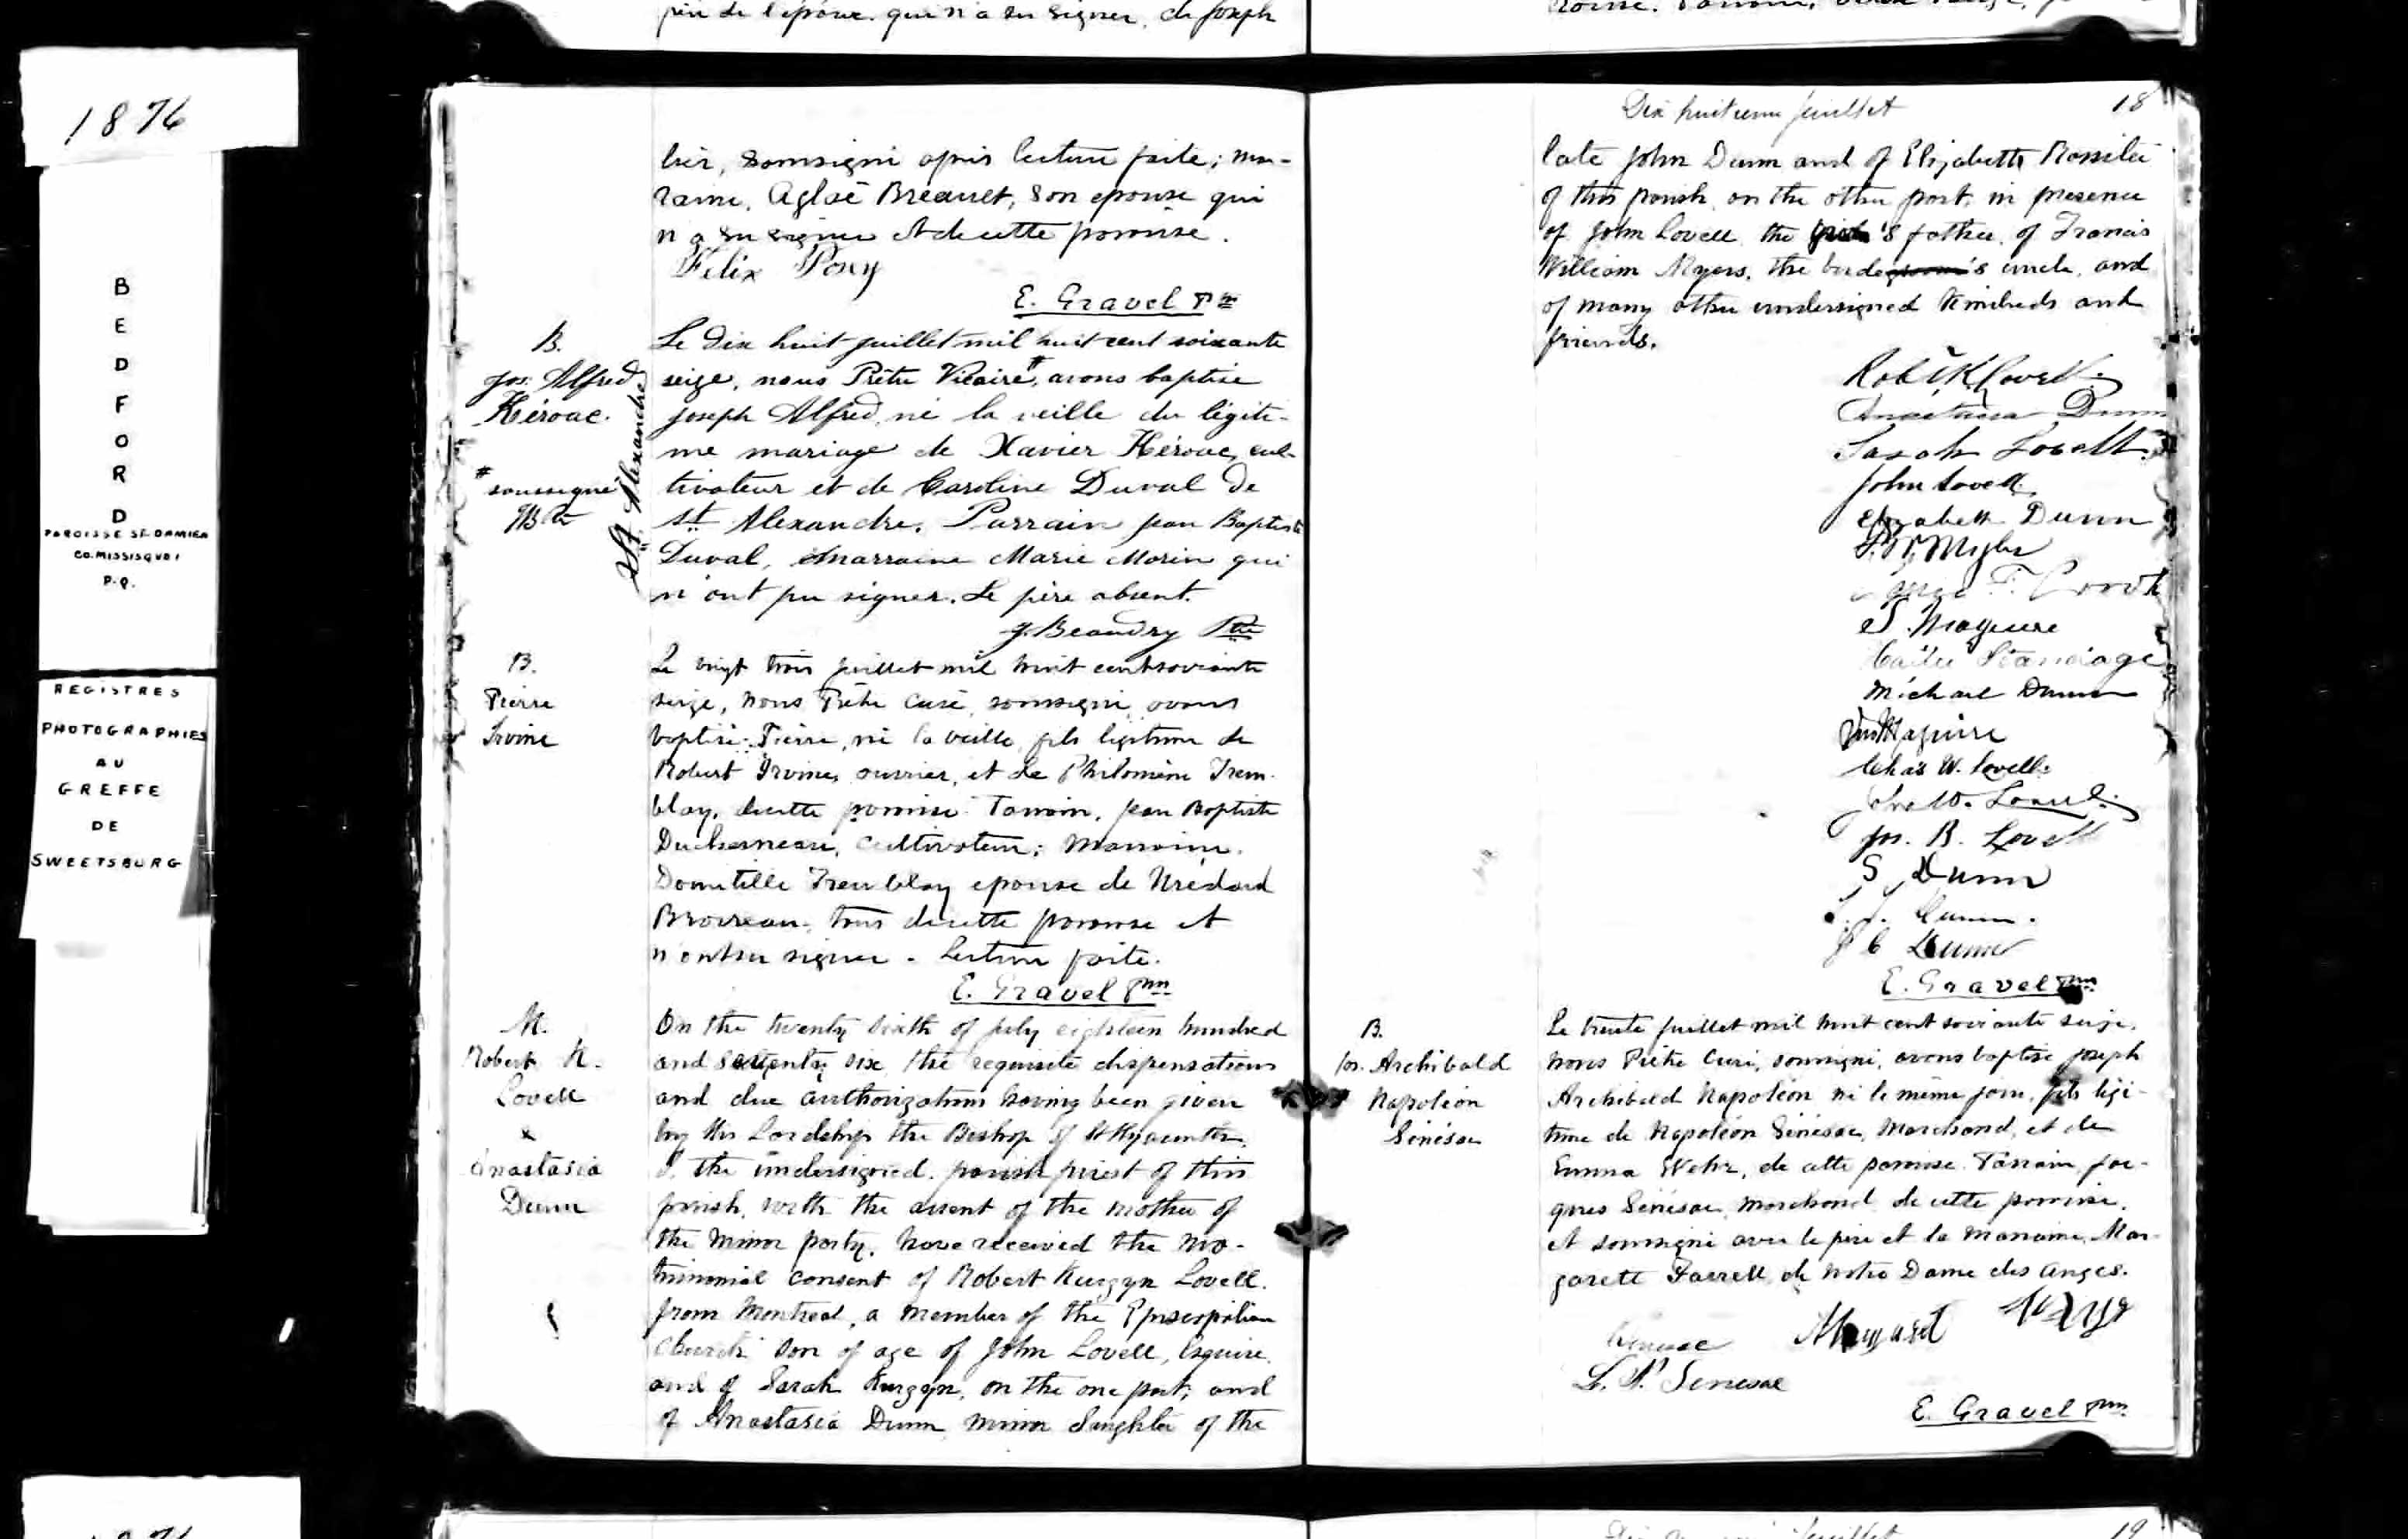 père de l'épour. qui n'a su signer, de Joseph
1876
B
E
D
F
O
R
D
PAROISSE ST-DAMIEN
CO. MISSISQUOI
P.Q.
REGISTRES
PHOTOGRAPHIES
AU
GREFFE
DE
SWEETSBURG
lier, soussigné après lecture faite; ma-
raine, Aglaé Breault, son epouse qui
n'a su signer et de cette paroisse.
Felix Pony
E. Gravel Ptre
B.
Jos. Alfred
Kérouac.
# soussigné
JB Ptre
St Alexandre
Le dix huit juillet mil huit cent soixante
seize, nous Prêtre Vicaire #, avons baptisé
Joseph Alfred, né la veille du légiti-
me mariage de Xavier Kérouac, cul-
tivateur et de Caroline Duval de
St Alexandre. Parrain Jean Baptiste
Duval, Marraine Marie Morin qui
n'ont pu signer. Le père absent.
J. Beaudry Ptre
B.
Pierre
Irvine
Le vingt trois juillet mil huit cent soixante
seize, nous Prêtre Curé, soussigné, avons
baptisé Pierre, né la veille, fils légitime de
Robert Irvine, ouvrier, et de Philomène Trem-
blay, de cette paroisse. Parrain, Jean Baptiste
Ducharneau, cultivateur; Marraine,
Domitille Tremblay epouse de Médard
Broureau, tous de cette paroisse et
n'ont su signer. Lecture faite.
E. Gravel Ptre
M.
Robert K.
Lovell
&
Anastasia
Dunn
On the twenty sixth of July eighteen hundred
and seventy six the requisite dispensations
and due authorizations having been given
by His Lordship the Bishop of St Hyacinthe,
I, the undersigned, parish priest of this
parish, with the assent of the mother of
the minor party, have received the ma-
trimonial consent of Robert Kurzyn Lovell,
from Montreal, a member of the Episcopalian
Church, son of age of John Lovell, Esquire,
and of Sarah Kurzyn, on the one part, and
of Anastasia Dunn, minor daughter of the
Dix huitième feuillet 18
late John Dunn and of Elizabeth
of this parish, on the other part, in presence
of John Lovell, the 's father, of Francis
William Myers, the bridegroom's uncle, and
of many other undersigned kindreds and
friends.
Robt K Lovell
Anastasia Dunn
Sarah Lovell
John Lovell
Elizabeth Dunn
F. W. Myler
S. Maguire
Standage
Michael Dunn
Jno Maguire
Chas W. Lovell
John W. Lovell
Jos. B. Lovell
S. Dunn
Dunn
J C Dunn
E. Gravel Ptre
B.
Jos. Archibald
Napoléon
Sénésac
Le trente juillet mil huit cent soixante seize,
nous Prêtre Curé, soussigné, avons baptisé Joseph
Archibald Napoléon né le même jour, fils légi-
time de Napoléon Sénésac, Marchand, et de
Emma Wehr, de cette paroisse. Parrain, Jac-
ques Sénésac, marchand de cette paroisse,
et soussigné avec le père et la Marraine, Mar-
garett Farrell, de Notre Dame des Anges.
Senesac
L. N. Senesac
E. Gravel Ptre
feuillet 19